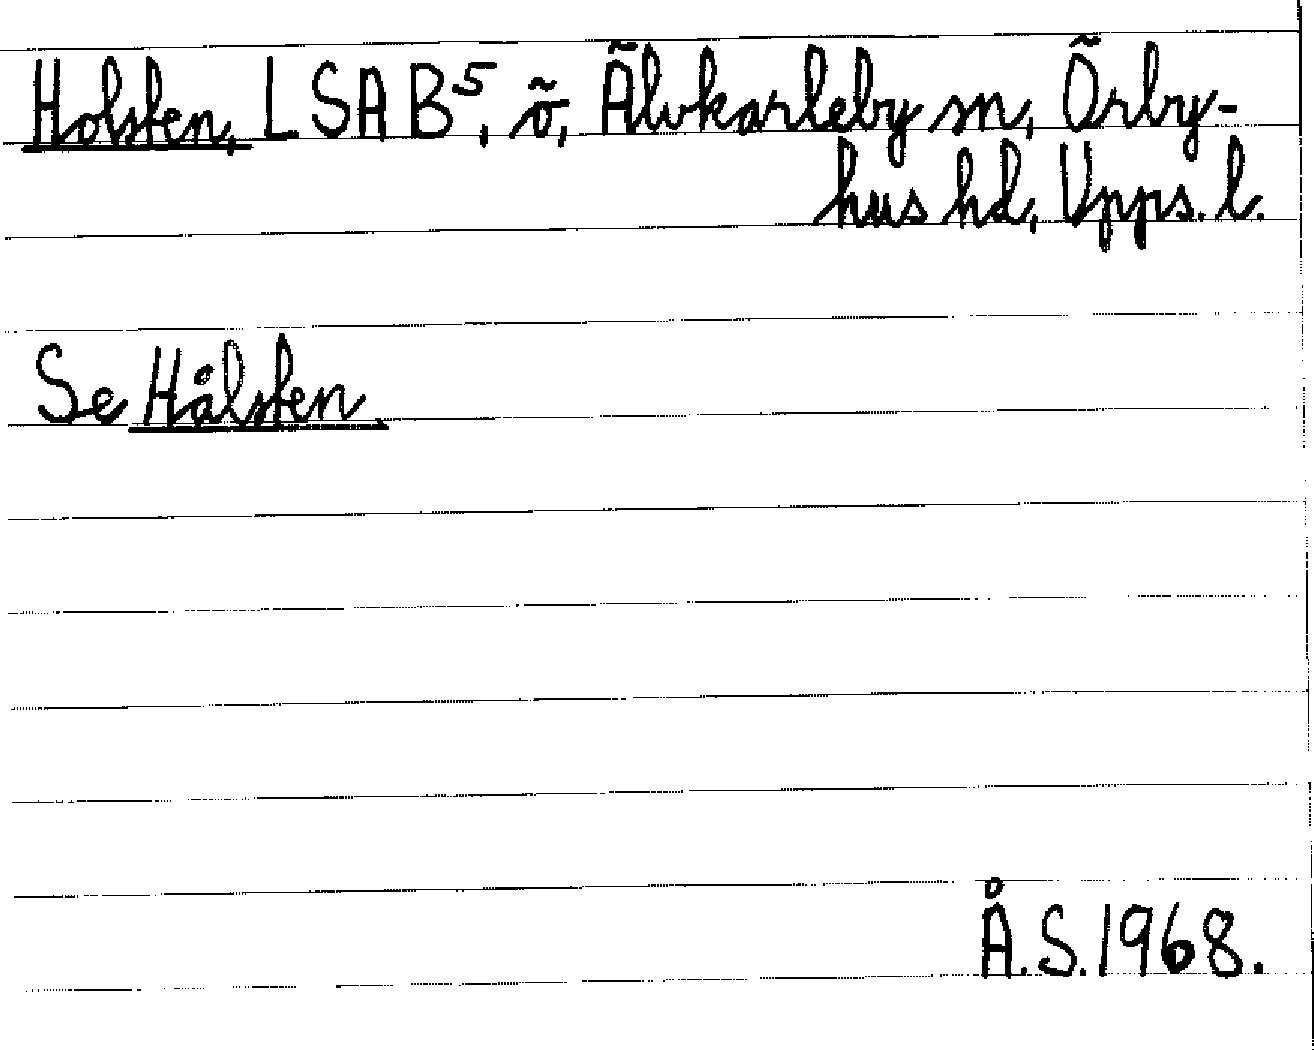 Holsten, LSA B⁵, ö, Älvkarleby sn, Örby-
hus hd, Upps. l.
Se Hålsten.
Å.S. 1968.